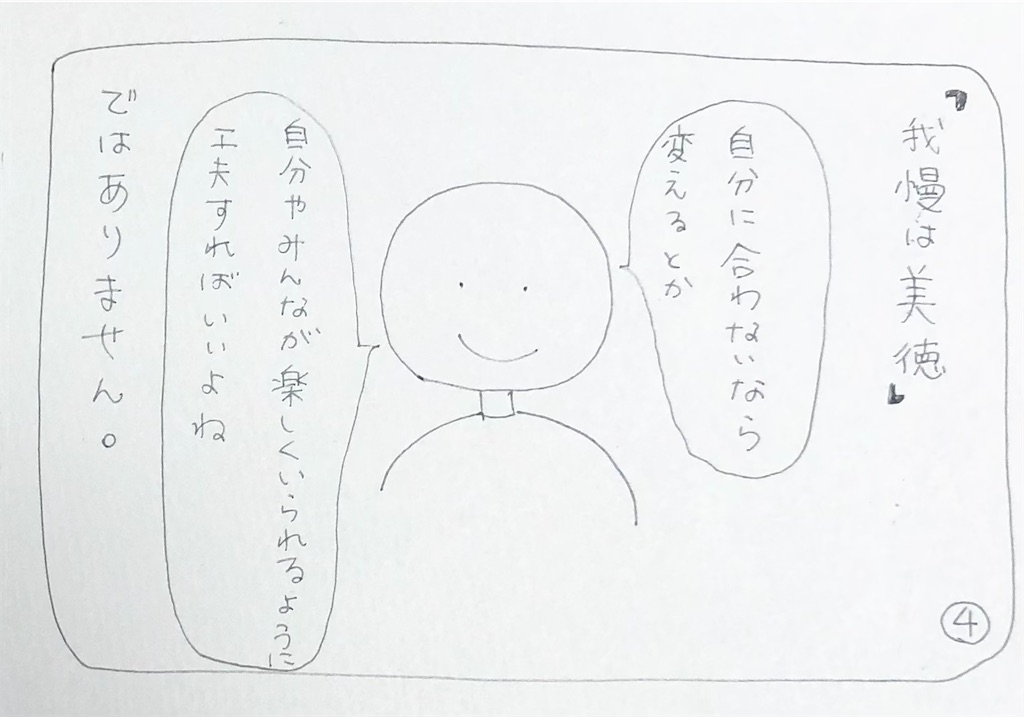 『我慢は美徳』
自分に合わないなら
変えるとか
自分やみんなが楽しくいられるように
工夫すればいいよね
ではありません。
④